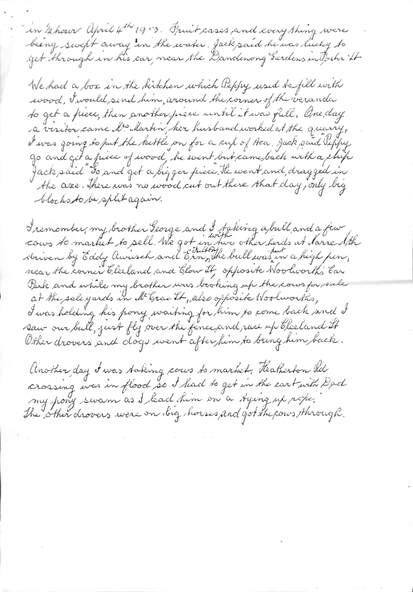 in ½ hour April 4th 19 3. Fruit cases and everything were
being swept away in the water. Jack said he was lucky to
get through in his car, near the Dandenong Gardens in Foster St
We had a box in the kitchen which Peppy used to fill with
wood, I would send him, around the corner of the veranda
to get a piece, then another piece until it was full. One day
a visitor came Mrs Martin, her husband worked at the quarry,
I was going to put the kettle on for a cup of tea. Jack said "Peppy
go and get a piece of wood, he went but came back with a chip
Jack said "Go and get a bigger piece". He went and dragged in
the axe. There was no wood cut out there that day, only big
blocks to be split again.
I remember my brother George and I taking a bull and a few
cows to market to sell. We got in with two other herds at Narre Nth
driven by Eddy and Ern, the bull was put in a high pen,
near the corner Cleeland and Clow St, opposite Woolworths Car
Park and while my brother was booking up the cows for sale
at the saleyards in McCrae St, also opposite Woolworths,
I was holding his pony waiting for him to come back and I
saw our bull, just fly over the fence, and race up Cleeland St
Other drovers and dogs went after him, to bring him back.
Another day I was taking cows to market, Heatherton Rd
crossing was in flood so I had to get in the cart with Dad
my pony swam as I lead him on a tying up rope.
The other drovers were on big horses, and got the cows through.